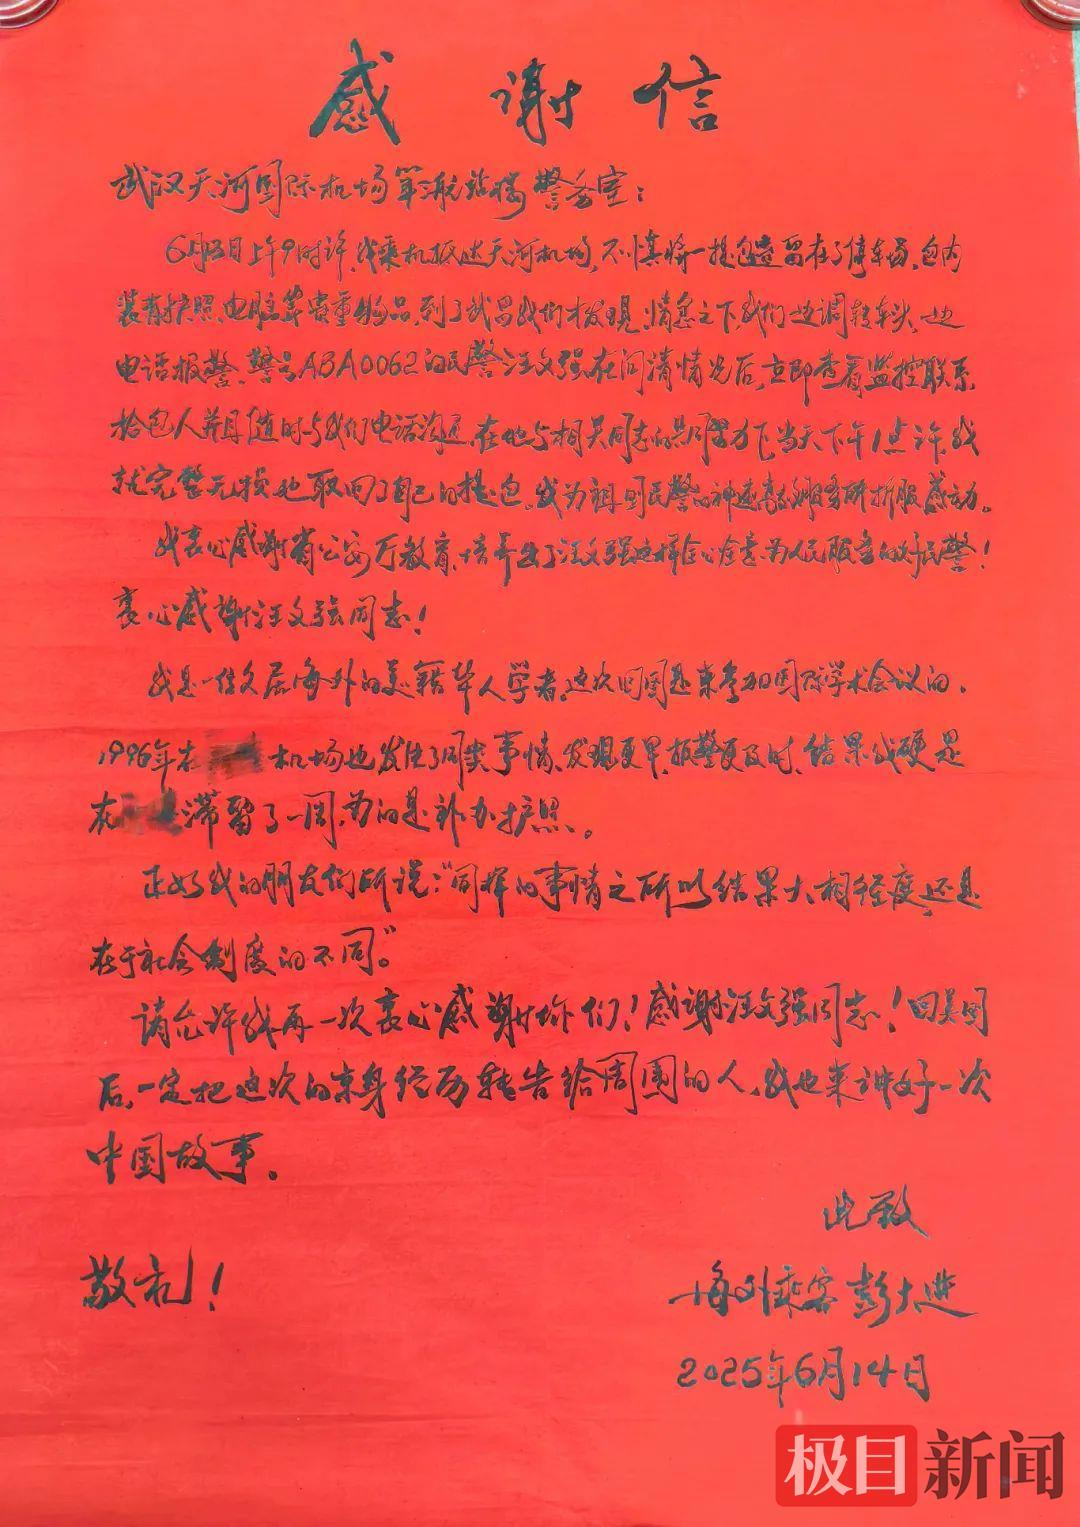 感谢信
武汉天河国际机场 航站楼警务室：
6月 日上午9时许，我乘机抵达天河机场，不慎将一提包遗留在了停车场，包内
装有护照、电脑等贵重物品，到了武昌我们才发现，情急之下，我们边调转车头，边
电话报警，警号ABA0062的民警汪文强在问清情况后，立即查看监控联系
拾包人并且随时与我们电话沟通，在他与相关同志的共同努力下，当天下午1点许，我
就完整无损地取回了自己的提包。我为祖国民警的神速高效服务所折服感动。
我衷心感谢省公安厅教育、培养出了汪文强这样全心全意为人民服务的好民警！
衷心感谢汪文强同志！
我是一位久居海外的美籍华人学者，这次回国是来参加国际学术会议的。
1996年在 机场也发生了同类事情，发现更早，报警更及时，结果我硬是
在 滞留了一周，为的是补办护照。
正好我的朋友们所说：“同样的事情之所以结果大相径庭，还是
在于社会制度的不同”。
请允许我再一次衷心感谢你们！感谢汪文强同志！回美国
后，一定把这次的亲身经历转告给周围的人，我也来讲好一次
中国故事。
此致
敬礼！
海外乘客 彭大进
2025年6月14日
极目新闻
极目新闻